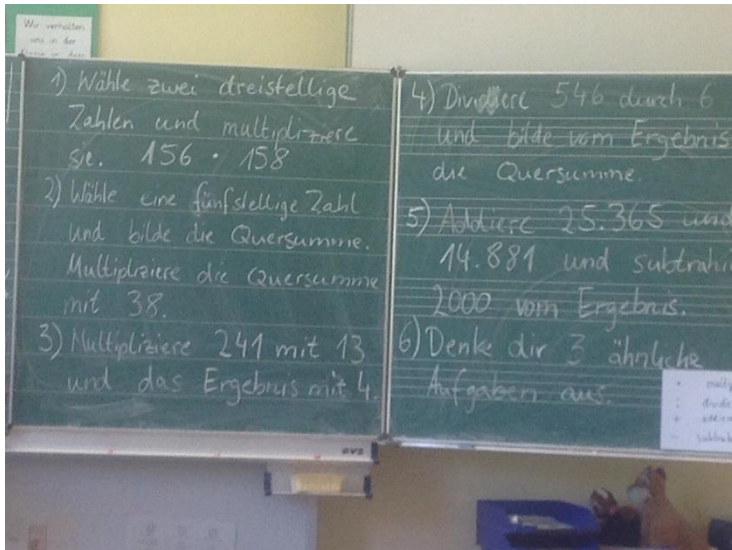 Wir verhalten
uns in der
1) Wähle zwei dreistellige
Zahlen und multipliziere
sie. 156 · 158
2) Wähle eine fünfstellige Zahl
und bilde die Quersumme.
Multipliziere die Quersumme
mit 38.
3) Multipliziere 241 mit 13
und das Ergebnis mit 4.
4) Dividiere 546 durch 6
und bilde vom Ergebnis
die Quersumme.
5) Addiere 25.365 und
14.881 und subtrahi
2000 vom Ergebnis.
6) Denke dir 3 ähnliche
Aufgaben aus.